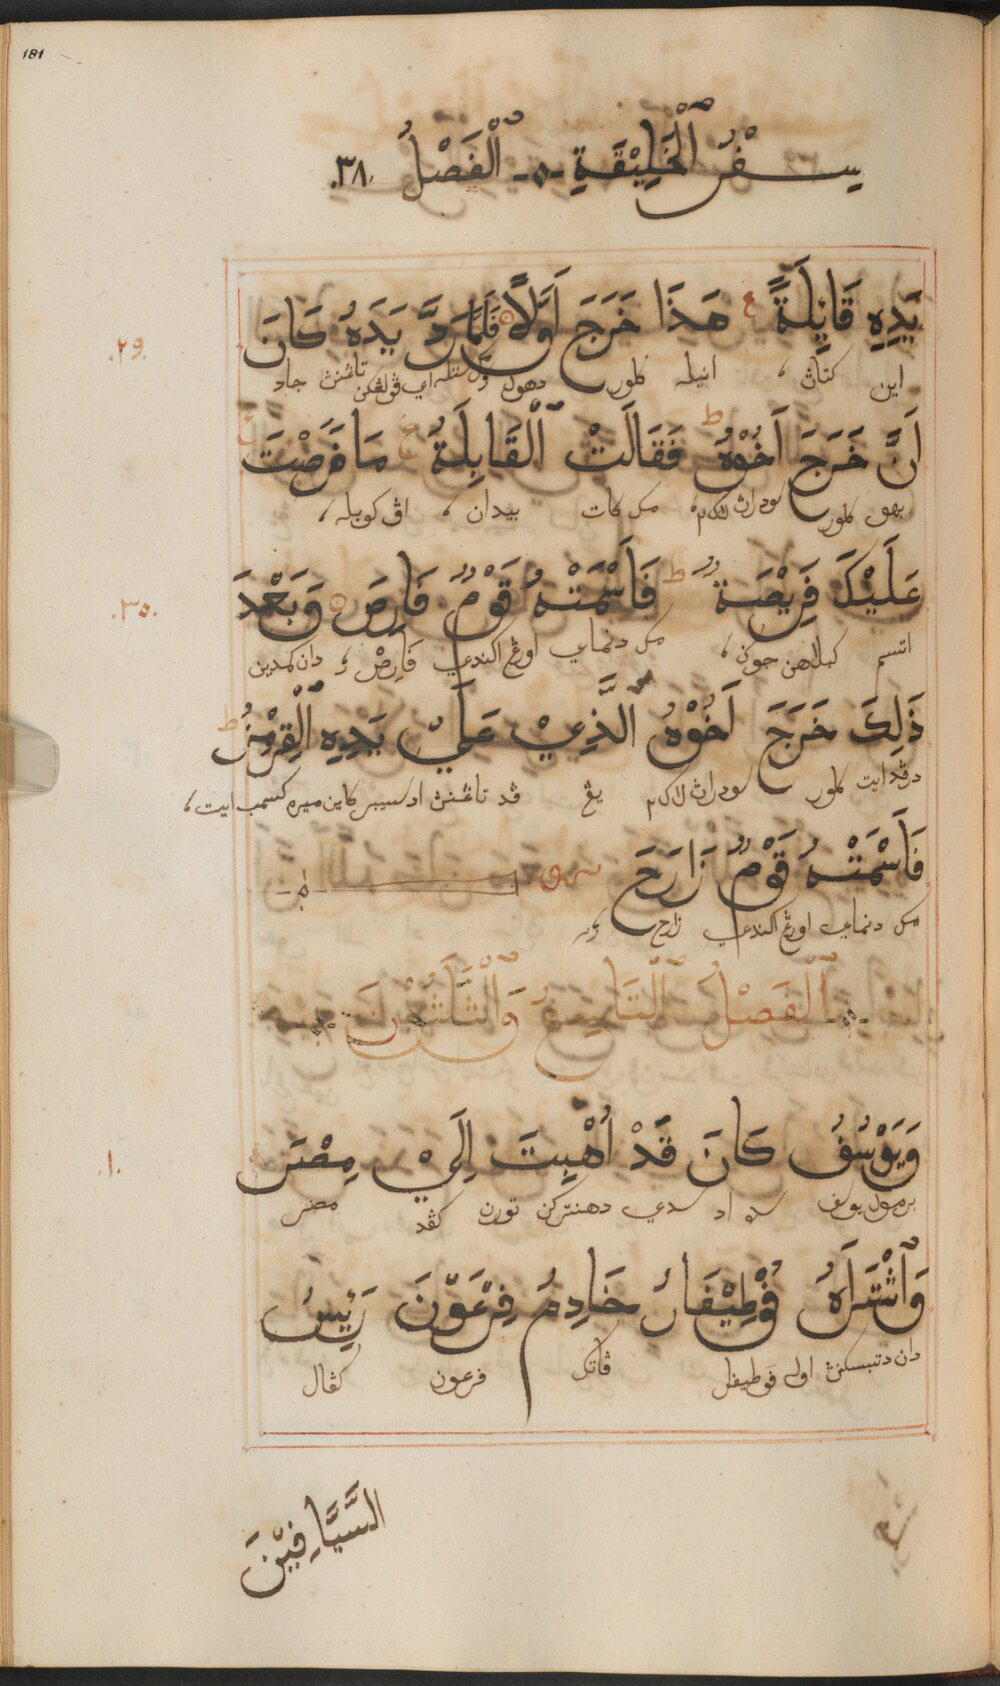 181
سِفْرُ ٱلْخَلِيْقَةِ ٱلْفَصْلُ ٣٨
يَدِهِ قَايِلَةً هَذَا خَرَجَ اَوَّلًا فَلَمَّا رَدَّ يَدَهُ كَانَ
٢٩
اين كتاڽ انيله كلور دهول
اَنَّ خَرَجَ اَخُوْهُ فَقَالَتْ ٱلْقَابِلَةُ مَا فَرَضْتَ
بهو كلور سودراڽ لاكم مك كات بيدان اڤ كوبيله
عَلَيْكَ فَرِيْضَةٌ فَاَسْمَتْهُ قَوْمٌ فَارِصَ وَبَعْدَ
٣٠
اتسم كبلاهن جوكن مك دنماي اورڠ اكندي فَارِصْ دان كمدين
ذَلِكَ خَرَجَ اَخُوْهُ ٱلَّذِيْ عَلَيْ يَدِهِ ٱلْقِرْمِزُ
درڤد ايت كلور سودراڽ لاكم يڠ ڤد تاڠنڽ اد سيبر كاين ميره كسمب ايت
فَاَسْمَتْهُ قَوْمٌ زَارَحَ
مك دنماي اورڠ اكندي زارح
ٱلْفَصْلُ ٱلتَّاسِعُ وَٱلثَّلَثُوْنَ
وَيَوْسُفُ كَانَ قَدْ اُهْبِتَ اِلَيْ مِصْرَ
١
برمول يوسف سده دهنتركن تورن كڤد مصر
وَٱشْتَرَاهُ فُوْطِيْفَارُ خَادِمُ فِرْعَوْنَ رَيِّيسُ
دان دتبسكنڽ اوله فوطيفر فرعون كڤال
السَّيَّافِيْنَ